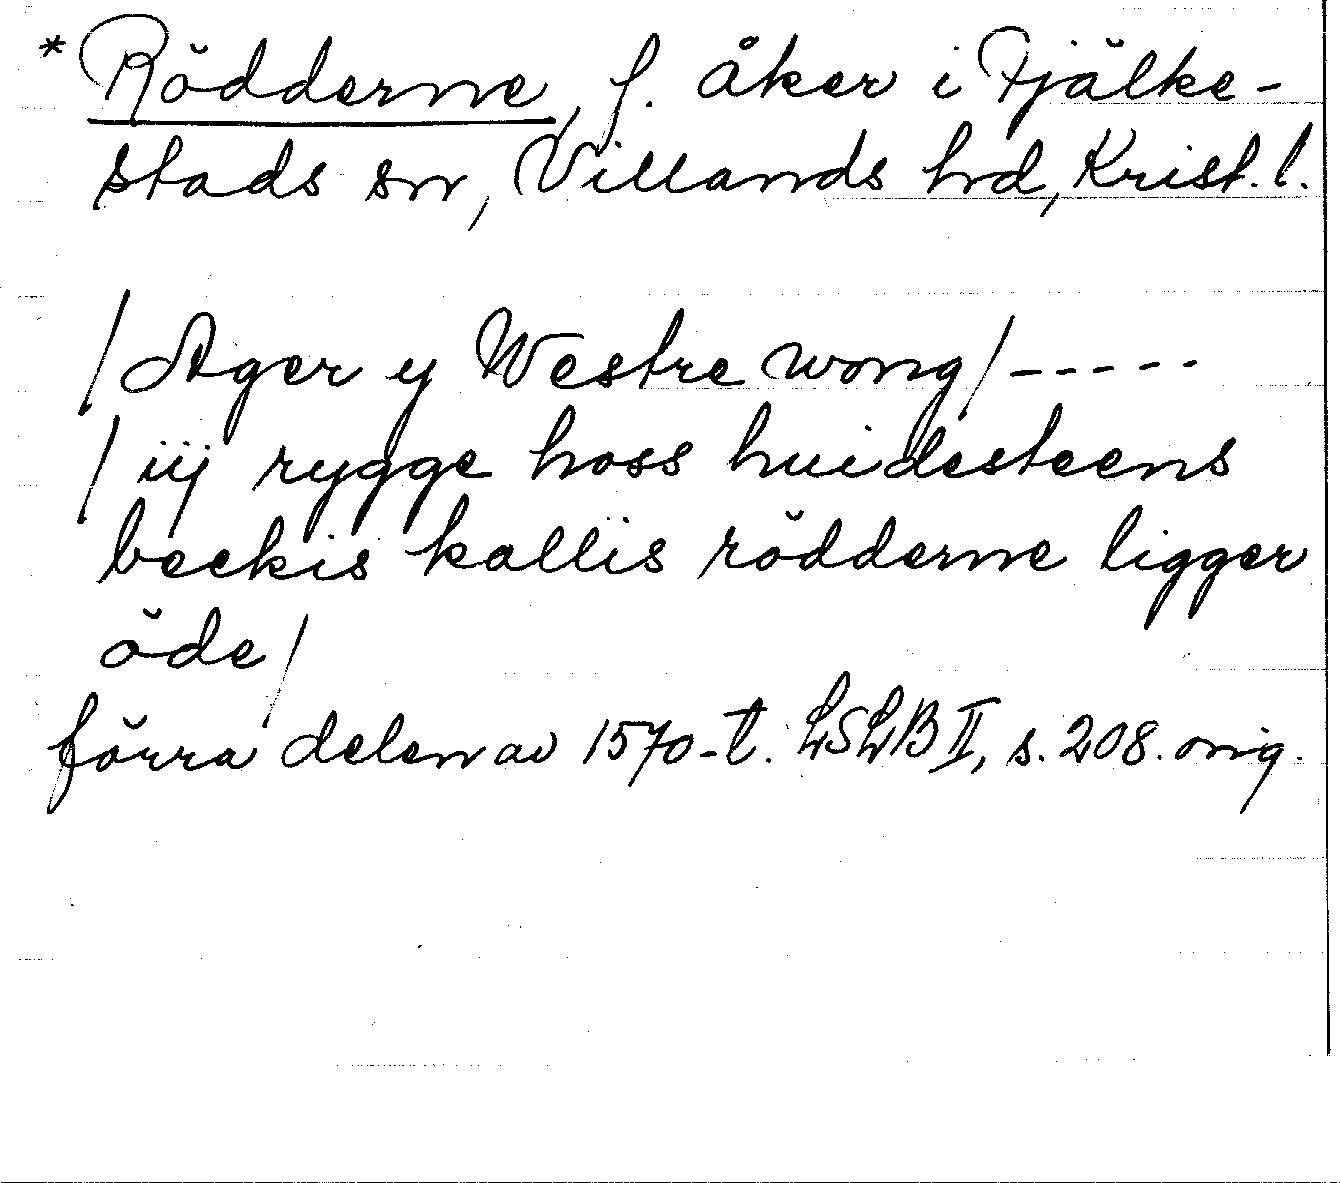 * Rödderne, f. åker i Fjälke-
stads sn, Villands hrd, Krist. l.
/Ager y Westre wong/-----
/iij rygge hoss huidesteens
beckis kallis rödderne ligger
öde/
förra delen av 1570-t. LSLB II, s. 208. orig.